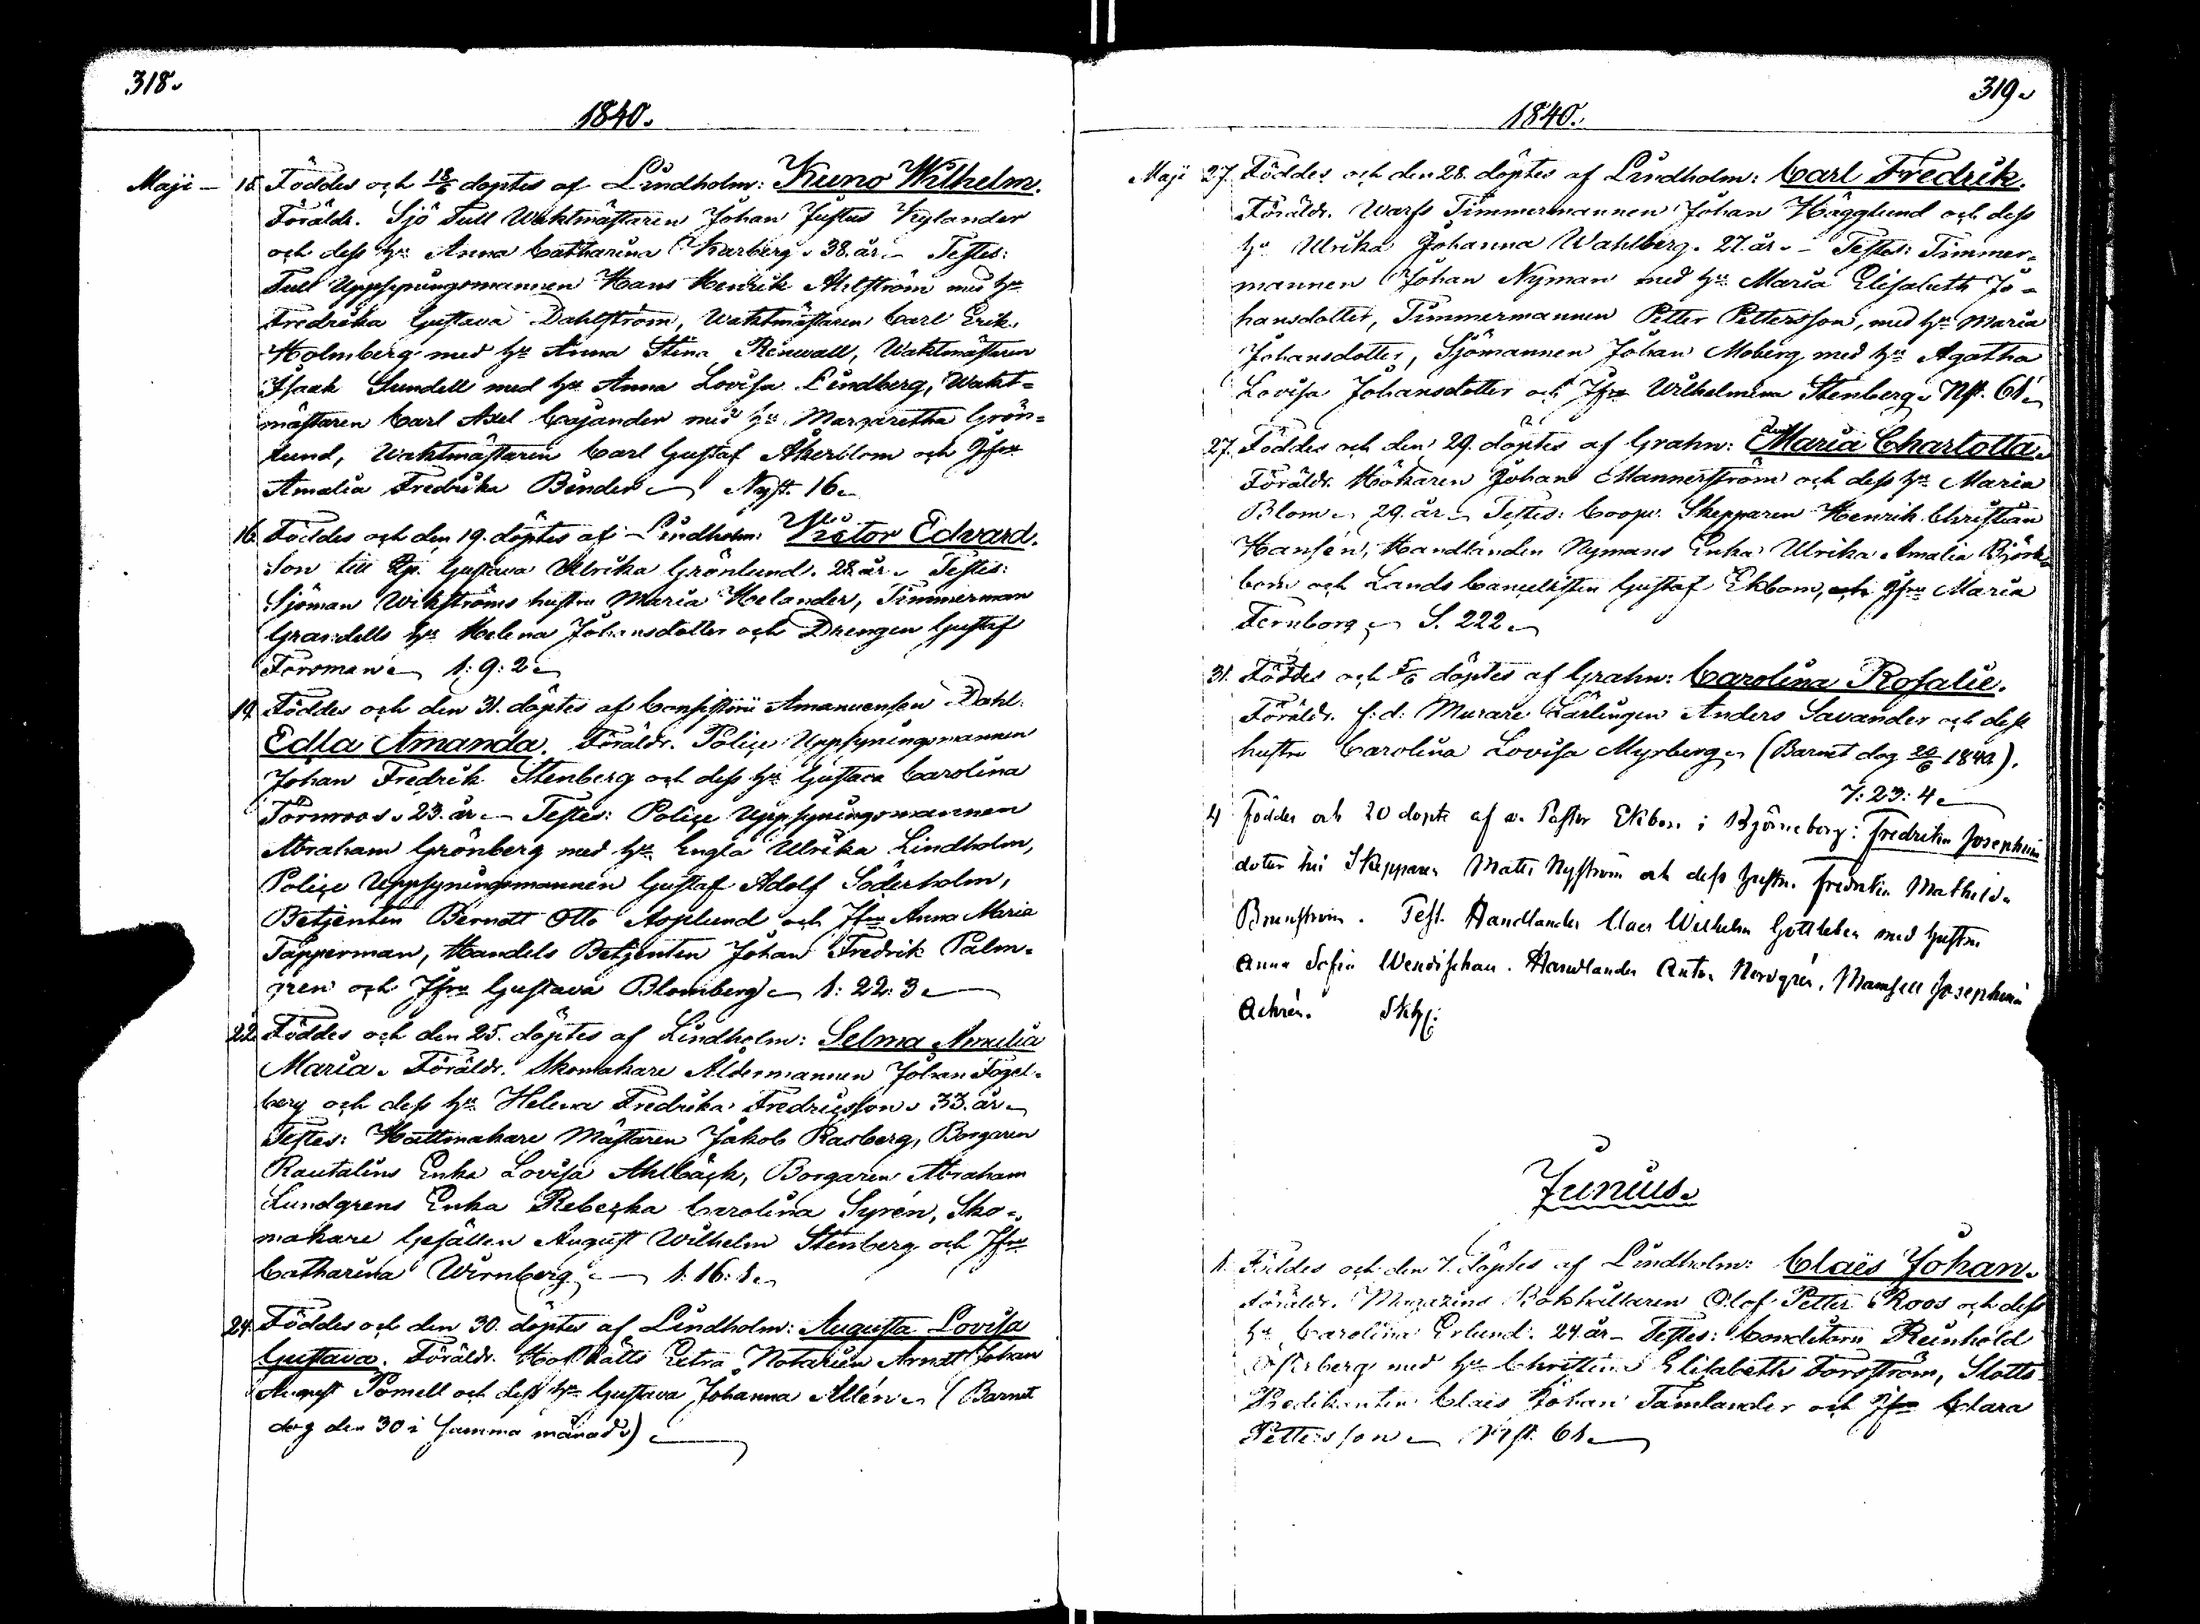 318.
1840.
Maji – 15. Föddes och 18/6 döptes af Lindholm: Kuno Wilhelm.
Föräldr. Sjö Tull Waktmästaren Johan Justus Kylander
och dess hu Anna Catharina Karberg. 38. år. – Testes:
Tull Uppsyningsmannen Hans Henrik Ahlström med hu
Fredrika Gustava Dahlström, Waktmästaren Carl Erik
Holmberg med hu Anna Stina Renwall, Waktmästaren
Isaak Sundell med hu Anna Lovisa Lindberg, Wakt-
mästaren Carl Axel Cajander med hu Margaretha Grön-
lund, Waktmästaren Carl Gustaf Åkerblom och Jfru
Amalia Fredrika Binder. Nyst. 16.
16. Föddes och den 19. döptes af Lindholm: Victor Edvard.
Son till Gustava Ulrika Grönlund. 28. år. Testes:
Sjöman Wikströms hustru Maria Helander, Timmerman
Grandells hu Helena Johansdotter och Drengen Gustaf
Forsman. 1: 9: 2.
19. Föddes och den 31. döptes af Consistorii Amanuensen Dahl:
Edla Amanda. Föräldr. Poliçe Uppsyningsmannen
Johan Fredrik Stenberg och dess hu Gustava Carolina
Törnroos. 23. år. – Testes: Poliçe Uppsyningsmannen
Abraham Grönberg med hu Engla Ulrika Lindholm,
Poliçe Uppsyningsmannen Gustaf Adolf Söderholm,
Betjenten Berndt Otto Asplund och Jfru Anna Maria
Tapperman, Handels Betjenten Johan Fredrik Palm-
gren och Jfru Gustava Blomberg. 1: 22: 3.
22. Föddes och den 25. döptes af Lindholm: Selma Amalia
Maria. Föräldr. Skomakare Åldermannen Johan Fogel-
berg och dess hu Helena Fredrika Fredricsson. 33. år.
Testes: Hattmakare Mästaren Jakob Rasberg, Borgaren
Rautalins Enka Lovisa Ahlbäçk, Borgaren Abraham
Lundgrens Enka Rebeçka Carolina Syrén, Sko-
makare Gesällen August Wilhelm Stenberg och Jfru
Catharina Wirnberg. 1: 16: 1.
24. Föddes och den 30. döptes af Lindholm: Augusta Lovisa
Gustava. Föräldr. Hof Rätts Extra Notarien Arndt Johan
August Pomell och dess hu Gustava Johanna Allén. (Barnet
dog den 30 i samma månad.)
319.
1840.
Maji 27. Föddes och den 28. döptes af Lindholm: Carl Fredrik.
Föräldr. Warfs Timmermannen Johan Hägglund och dess
hu Ulrika Johanna Wahlberg. 27. år. – Testes: Timmer-
mannen Johan Nyman med hu Maria Elisabeth Jo-
hansdotter, Timmermannen Petter Pettersson, med hu Maria
Johansdotter, Sjömannen Johan Moberg med hu Agatha
Lovisa Johansdotter och Jfru Wilhelmina Stenberg. Nyst. 61.
27. Föddes och den 29. döptes af Grahn: Maria Charlotta.
Föräldr. Hökaren Johan Mannerström och dess hu Maria
Blom. 29. år. Testes: Coop. Skepparen Henrik Christian
Hansén, Handlanden Nymans Enka Ulrika Amalia Björk-
bom och Lands Cancellisten Gustaf Ekbom, och Jfru Maria
Fernborg. S. 222.
31. Föddes och 5/6 döptes af Grahn: Carolina Rosalie.
Föräldr. f: d: Murare Lärlingen Anders Savander och dess
hustru Carolina Lovisa Myrberg. (Barnet dog 20/6 1840).
7: 23: 4.
4 föddes och 20 döpts af v. Pastor Ekbom i Björneborg: Fredrika Josephina
doter till Skepparen Matts Nyström och dess hustru Fredrika Mathilda
Brunström. Test. Handlanden Claes Wilhelm Gottleben med hustru
Anna Sofia Wendischau. Handlanden Anton Nordgrén, Mamsell Josephina
Achrén.
Junius.
1. Föddes och den 7. döptes af Lindholm: Claës Johan.
Föräldr. Magazins Bokhållaren Olof Petter Roos och dess
hu Carolina Erlund. 24. år – Testes: Conditorn Reinhold
Österberg med hu Christina Elisabeth Forsström, Slotts
Predikanten Claes Johan Tamlander och Jfru Clara
Pettersson. Nyst. 61.